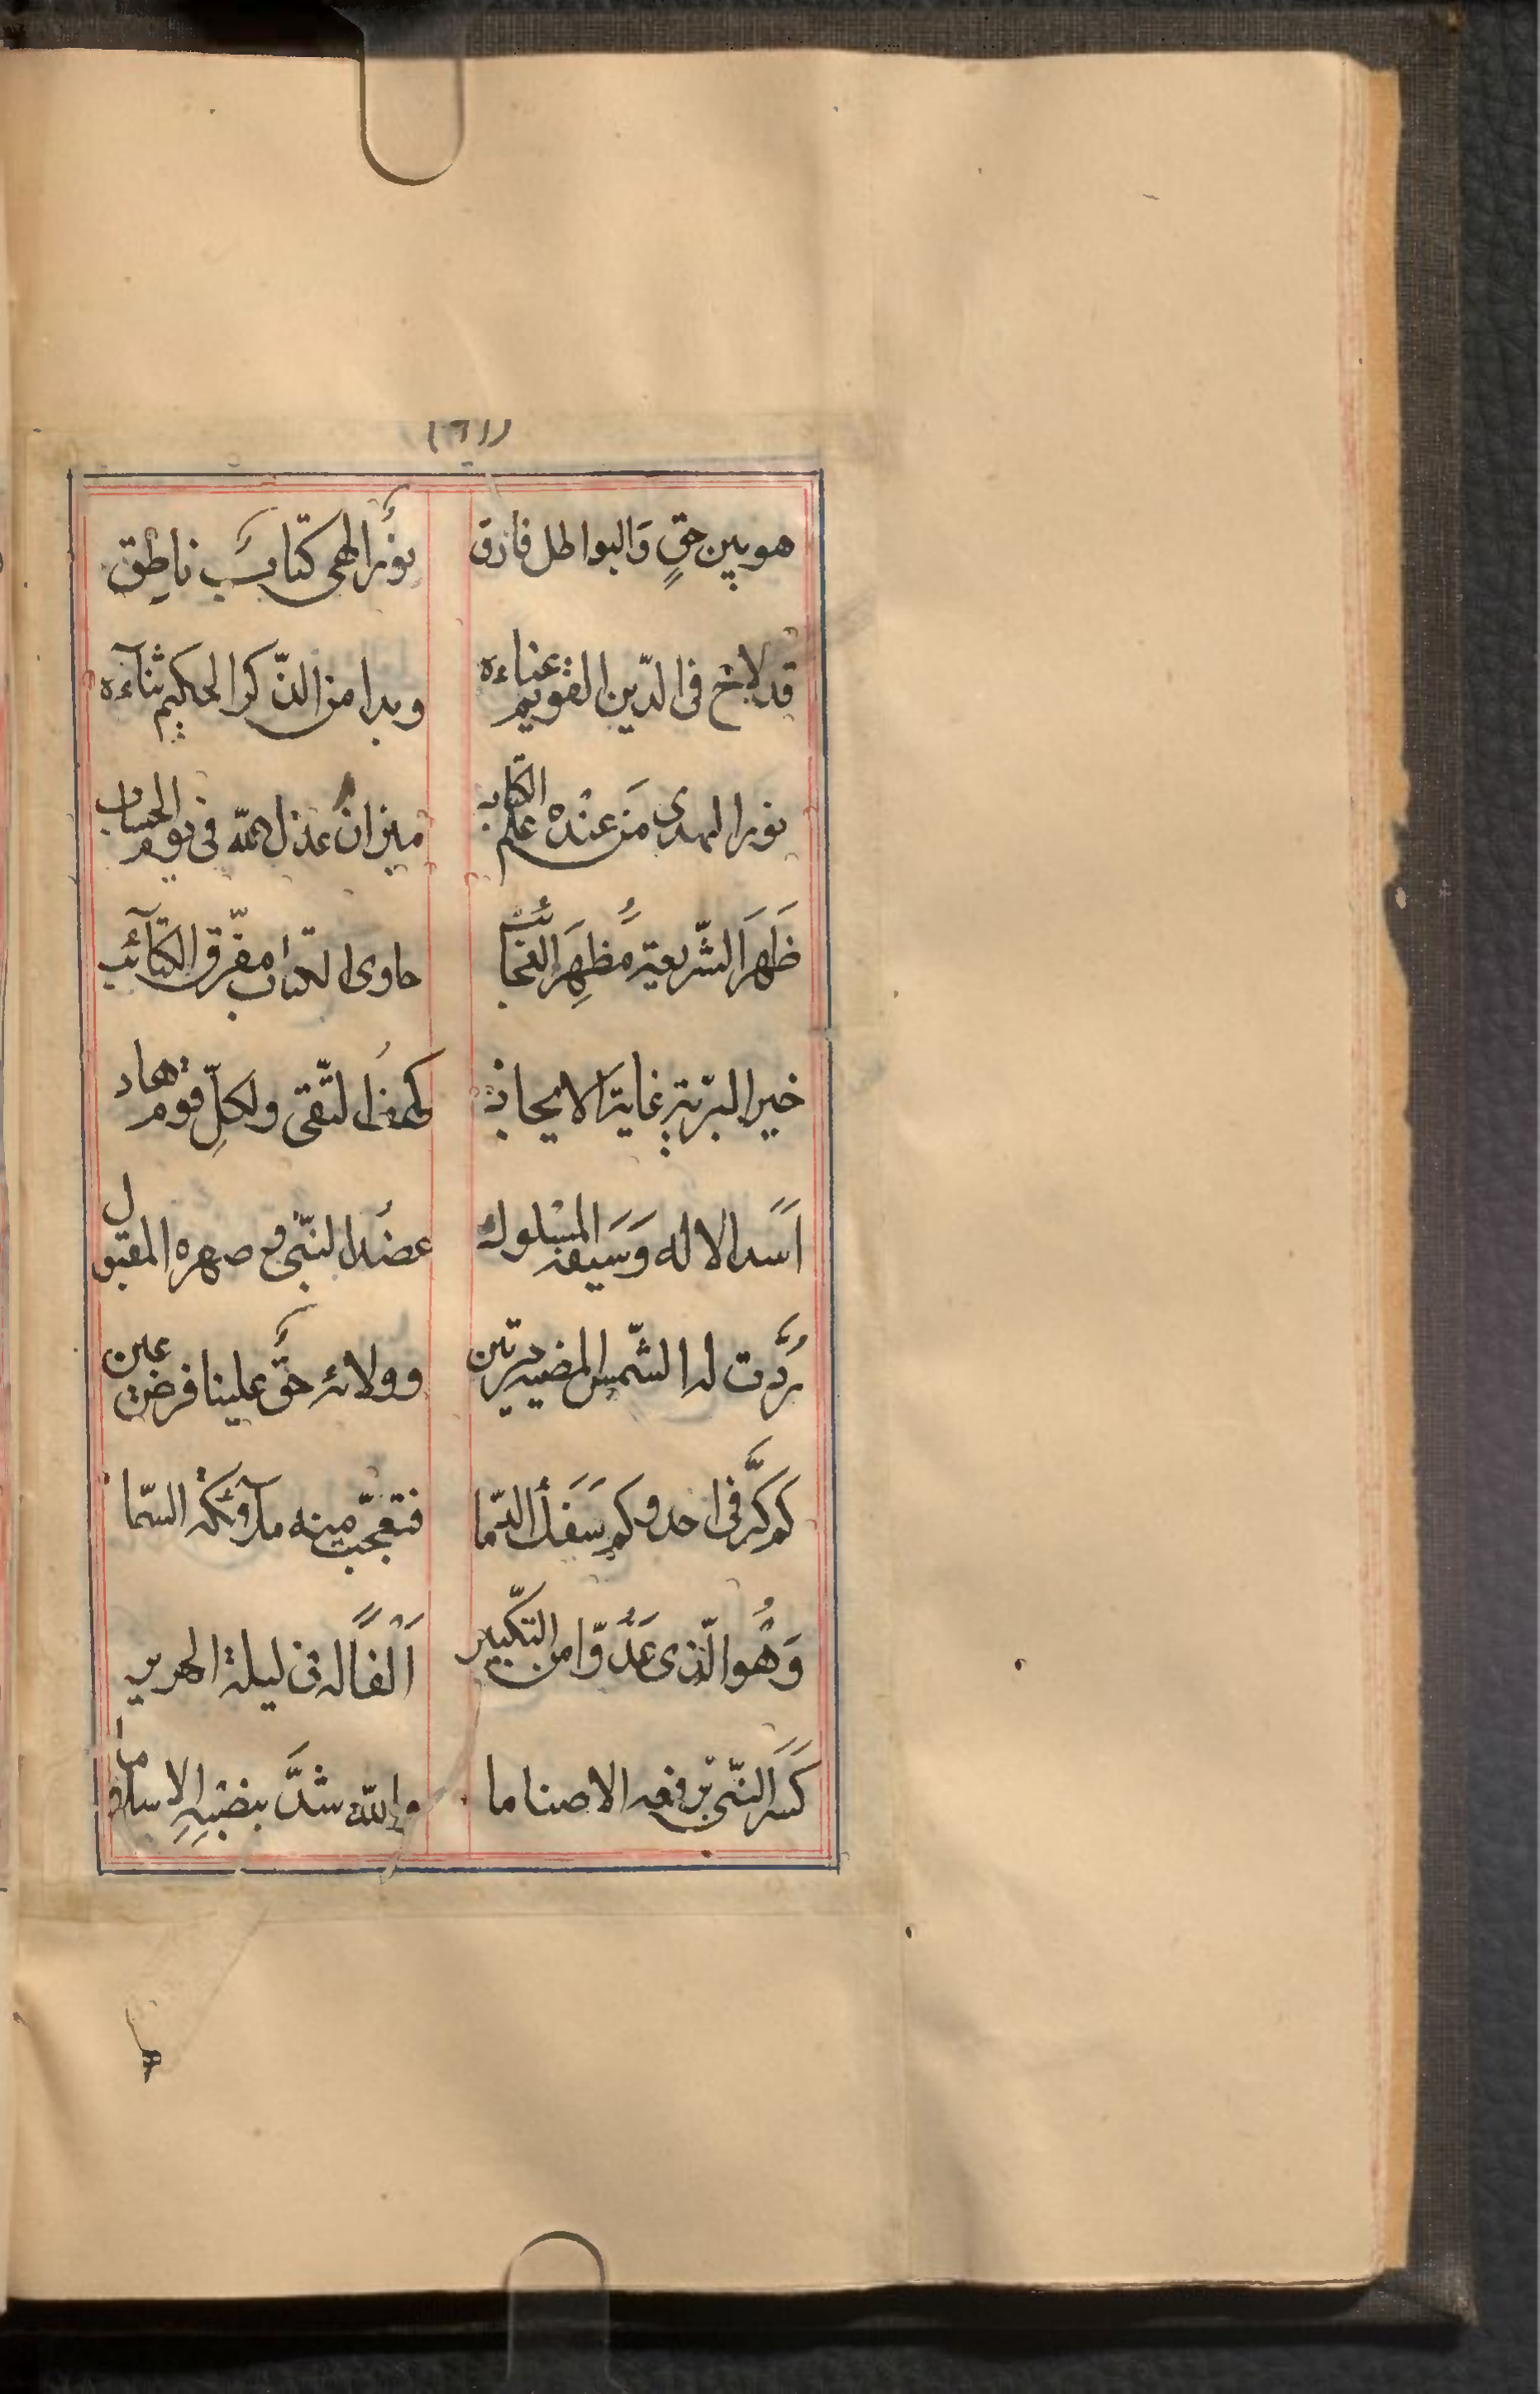 (٦١)
هو بين حقٍ وَالبواطل فارق نورُ الهى كتابَ ناطِق
قد لاح فى الدّين القويم عناءه وبدا من الذّكر الحكيم ثنآءه
نور الهدى مَن عنْده علم الكتاب ميزانُ عدل الله فى يوم الحساب
ظَهَرَ الشّريعة مُظهِرَ العجائب حاوى الكتاب مفرّق الكتآئب
خير البريّة غاية الايجاد كهف التّقى ولكلِّ قوم هاد
اَسَد الاله وَسَيفه المسْلول عضُد النّبى و صهره المقبول
رُدَّت له الشّمس المضيئه مرتين وولائه حقَّ علينا فرض عين
كم كَرَّ فى احد وكم سَفَك الدّما فتعجّبت مِنه ملآئكة السّما
وَهُو الّذى عَدُّوا من التكّبير اَلْفاً له فى ليلة الهرير
كَسَرَ النّبى برفعه الاصناما والله شدَّ بضبيهِ الاِسلاما